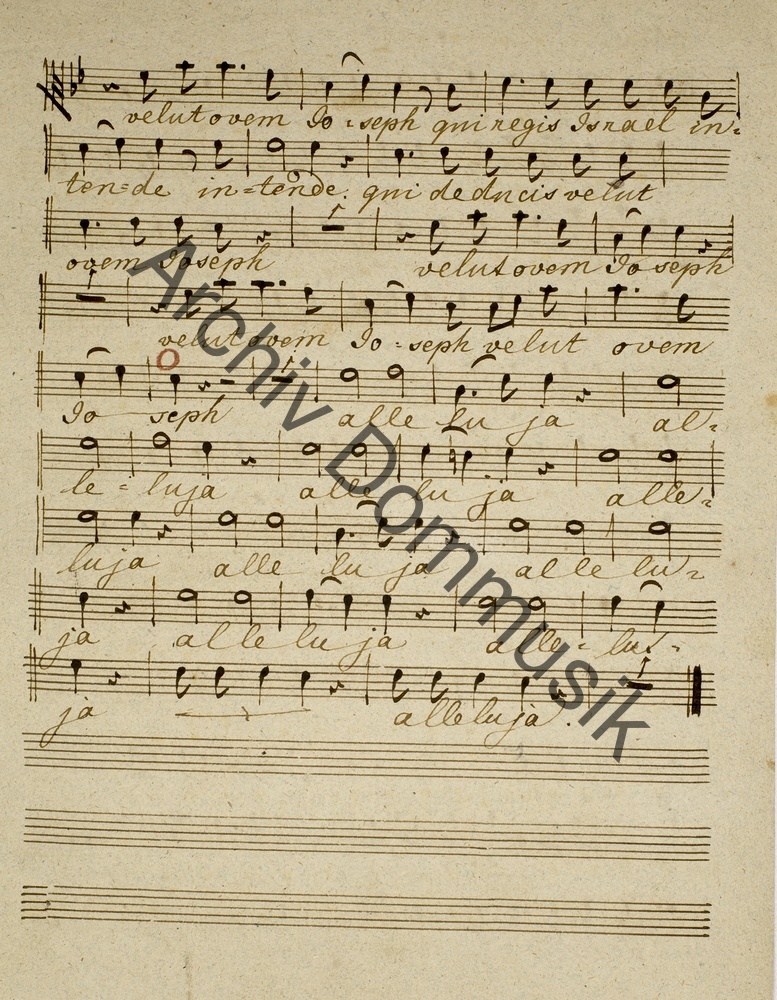 velut ovem Jo-seph qui regis Israel in-
ten-de in-tende. qui deducis velut
ovem Joseph velut ovem Jo seph
velut ovem Jo-seph velut ovem
Jo seph alle lu ja al-
le-luja alle lu ja alle-
luja alle lu ja alle lu-
ja alle lu ja alle-lu-
ja alleluja.
Archiv Dommusik